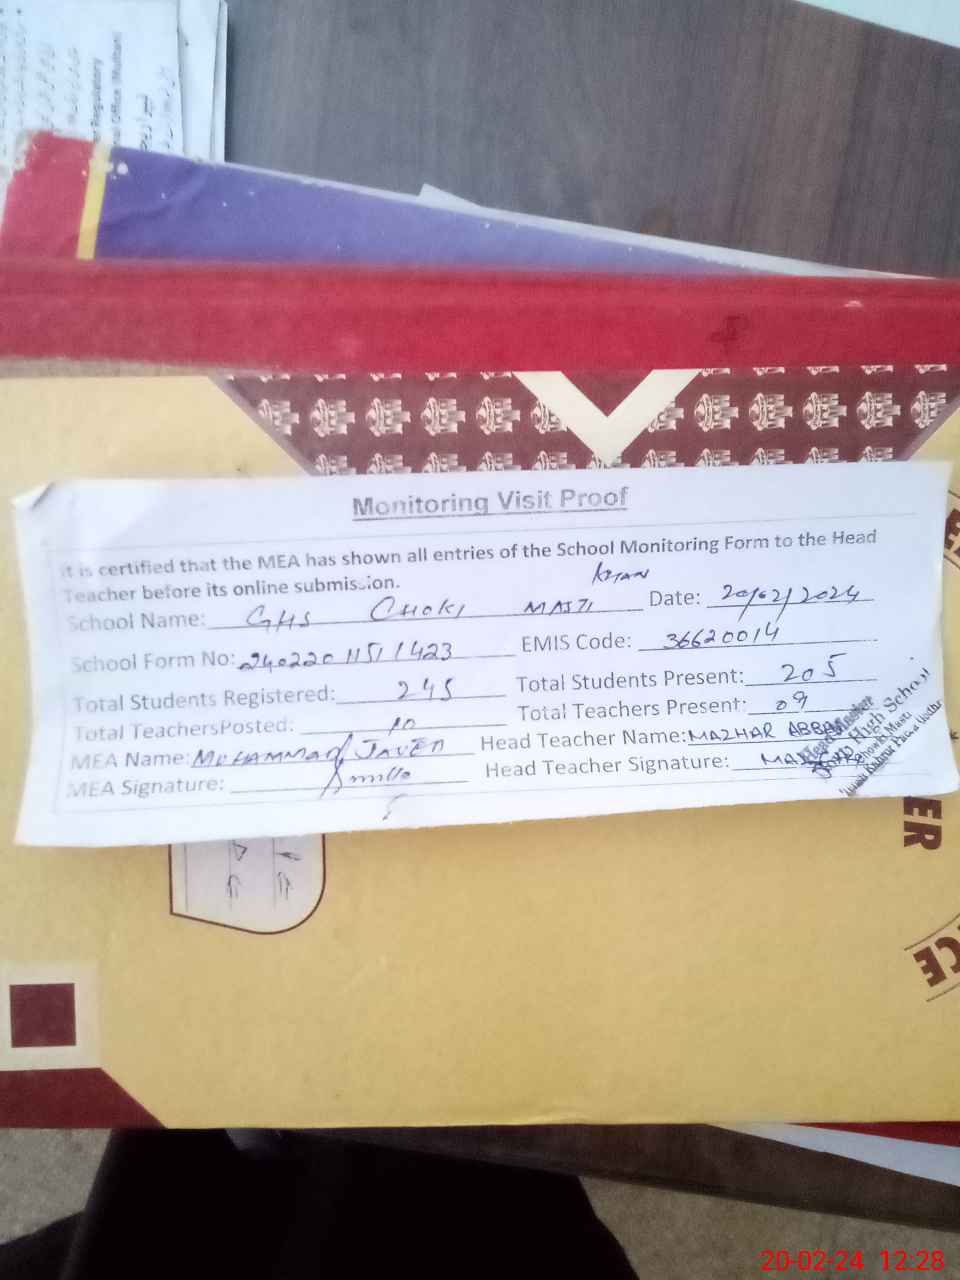 Monitoring Visit Proof
It is certified that the MEA has shown all entries of the School Monitoring Form to the Head
Teacher before its online submission.
School Name: GHS CHOKI MASTI KHAN Date: 20/02/2024
School Form No: 24022011511423 EMIS Code: 36620014
Total Students Registered: 245 Total Students Present: 205
Total TeachersPosted: 10 Total Teachers Present: 09
MEA Name: MUHAMMAD JAVED Head Teacher Name: MAZHAR ABBAS
MEA Signature: Head Teacher Signature:
Head Master
High School
ER
CE
20-02-24 12:28